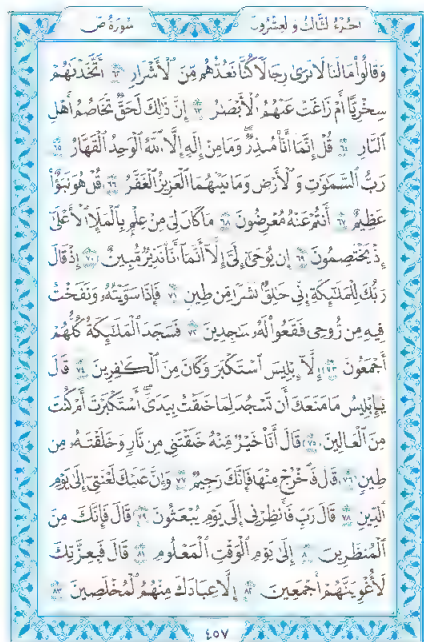 الجزء الثالث والعشرون
سورة ص
وَقَالُوا۟ مَا لَنَا لَا نَرَىٰ رِجَالًا كُنَّا نَعُدُّهُم مِّنَ ٱلْأَشْرَارِ ٦٢ أَتَّخَذْنَٰهُمْ
سِخْرِيًّا أَمْ زَاغَتْ عَنْهُمُ ٱلْأَبْصَٰرُ ٦٣ إِنَّ ذَٰلِكَ لَحَقٌّ تَخَاصُمُ أَهْلِ
ٱلنَّارِ ٦٤ قُلْ إِنَّمَآ أَنَا۠ مُنذِرٌ وَمَا مِنْ إِلَٰهٍ إِلَّا ٱللَّهُ ٱلْوَٰحِدُ ٱلْقَهَّارُ ٦٥
رَبُّ ٱلسَّمَٰوَٰتِ وَٱلْأَرْضِ وَمَا بَيْنَهُمَا ٱلْعَزِيزُ ٱلْغَفَّٰرُ ٦٦ قُلْ هُوَ نَبَؤٌا۟
عَظِيمٌ ٦٧ أَنتُمْ عَنْهُ مُعْرِضُونَ ٦٨ مَا كَانَ لِىَ مِنْ عِلْمٍۭ بِٱلْمَلَإِ ٱلْأَعْلَىٰٓ
إِذْ يَخْتَصِمُونَ ٦٩ إِن يُوحَىٰٓ إِلَىَّ إِلَّآ أَنَّمَآ أَنَا۠ نَذِيرٌ مُّبِينٌ ٧٠ إِذْ قَالَ
رَبُّكَ لِلْمَلَٰٓئِكَةِ إِنِّى خَٰلِقٌۢ بَشَرًا مِّن طِينٍ ٧١ فَإِذَا سَوَّيْتُهُۥ وَنَفَخْتُ
فِيهِ مِن رُّوحِى فَقَعُوا۟ لَهُۥ سَٰجِدِينَ ٧٢ فَسَجَدَ ٱلْمَلَٰٓئِكَةُ كُلُّهُمْ
أَجْمَعُونَ ٧٣ إِلَّآ إِبْلِيسَ ٱسْتَكْبَرَ وَكَانَ مِنَ ٱلْكَٰفِرِينَ ٧٤ قَالَ
يَٰٓإِبْلِيسُ مَا مَنَعَكَ أَن تَسْجُدَ لِمَا خَلَقْتُ بِيَدَىَّ أَسْتَكْبَرْتَ أَمْ كُنتَ
مِنَ ٱلْعَالِينَ ٧٥ قَالَ أَنَا۠ خَيْرٌ مِّنْهُ خَلَقْتَنِى مِن نَّارٍ وَخَلَقْتَهُۥ مِن
طِينٍ ٧٦ قَالَ فَٱخْرُجْ مِنْهَا فَإِنَّكَ رَجِيمٌ ٧٧ وَإِنَّ عَلَيْكَ لَعْنَتِىٓ إِلَىٰ يَوْمِ
ٱلدِّينِ ٧٨ قَالَ رَبِّ فَأَنظِرْنِىٓ إِلَىٰ يَوْمِ يُبْعَثُونَ ٧٩ قَالَ فَإِنَّكَ مِنَ
ٱلْمُنظَرِينَ ٨٠ إِلَىٰ يَوْمِ ٱلْوَقْتِ ٱلْمَعْلُومِ ٨١ قَالَ فَبِعِزَّتِكَ
لَأُغْوِيَنَّهُمْ أَجْمَعِينَ ٨٢ إِلَّا عِبَادَكَ مِنْهُمُ ٱلْمُخْلَصِينَ ٨٣
٤٥٧